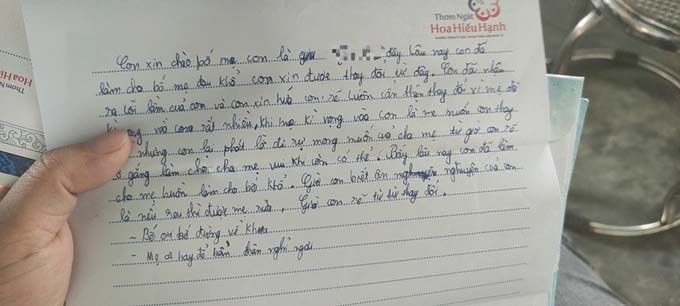 Thơm Ngát
HoaHiếuHạnh
Con xin chào bố mẹ con là đây. Lâu nay con đã
làm cho bố mẹ đau khổ con xin được thay đổi từ đây. Con đã nhận
ra lỗi lầm của con và con xin hứa con sẽ luôn cẩn thận thay đổi vì mẹ đã
vọng vào con rất nhiều, khi mẹ kì vọng vào con là mẹ muốn con thay
nhưng con lại phớt lờ đi sự mong muốn của cha mẹ từ giờ con sẽ
cố gắng làm cho cha mẹ vui khi còn có thể. Bấy lâu nay con đã làm
cho mẹ buồn làm cho bố khổ. Giờ con biết ăn nguyện của con
là nếu sau thì được mẹ sửa. Giờ con sẽ từ từ thay đổi.
- Bố ơi bố đừng về khuya
- Mẹ ơi hãy để bản thân nghỉ ngơi
Thơm N
HoaHi